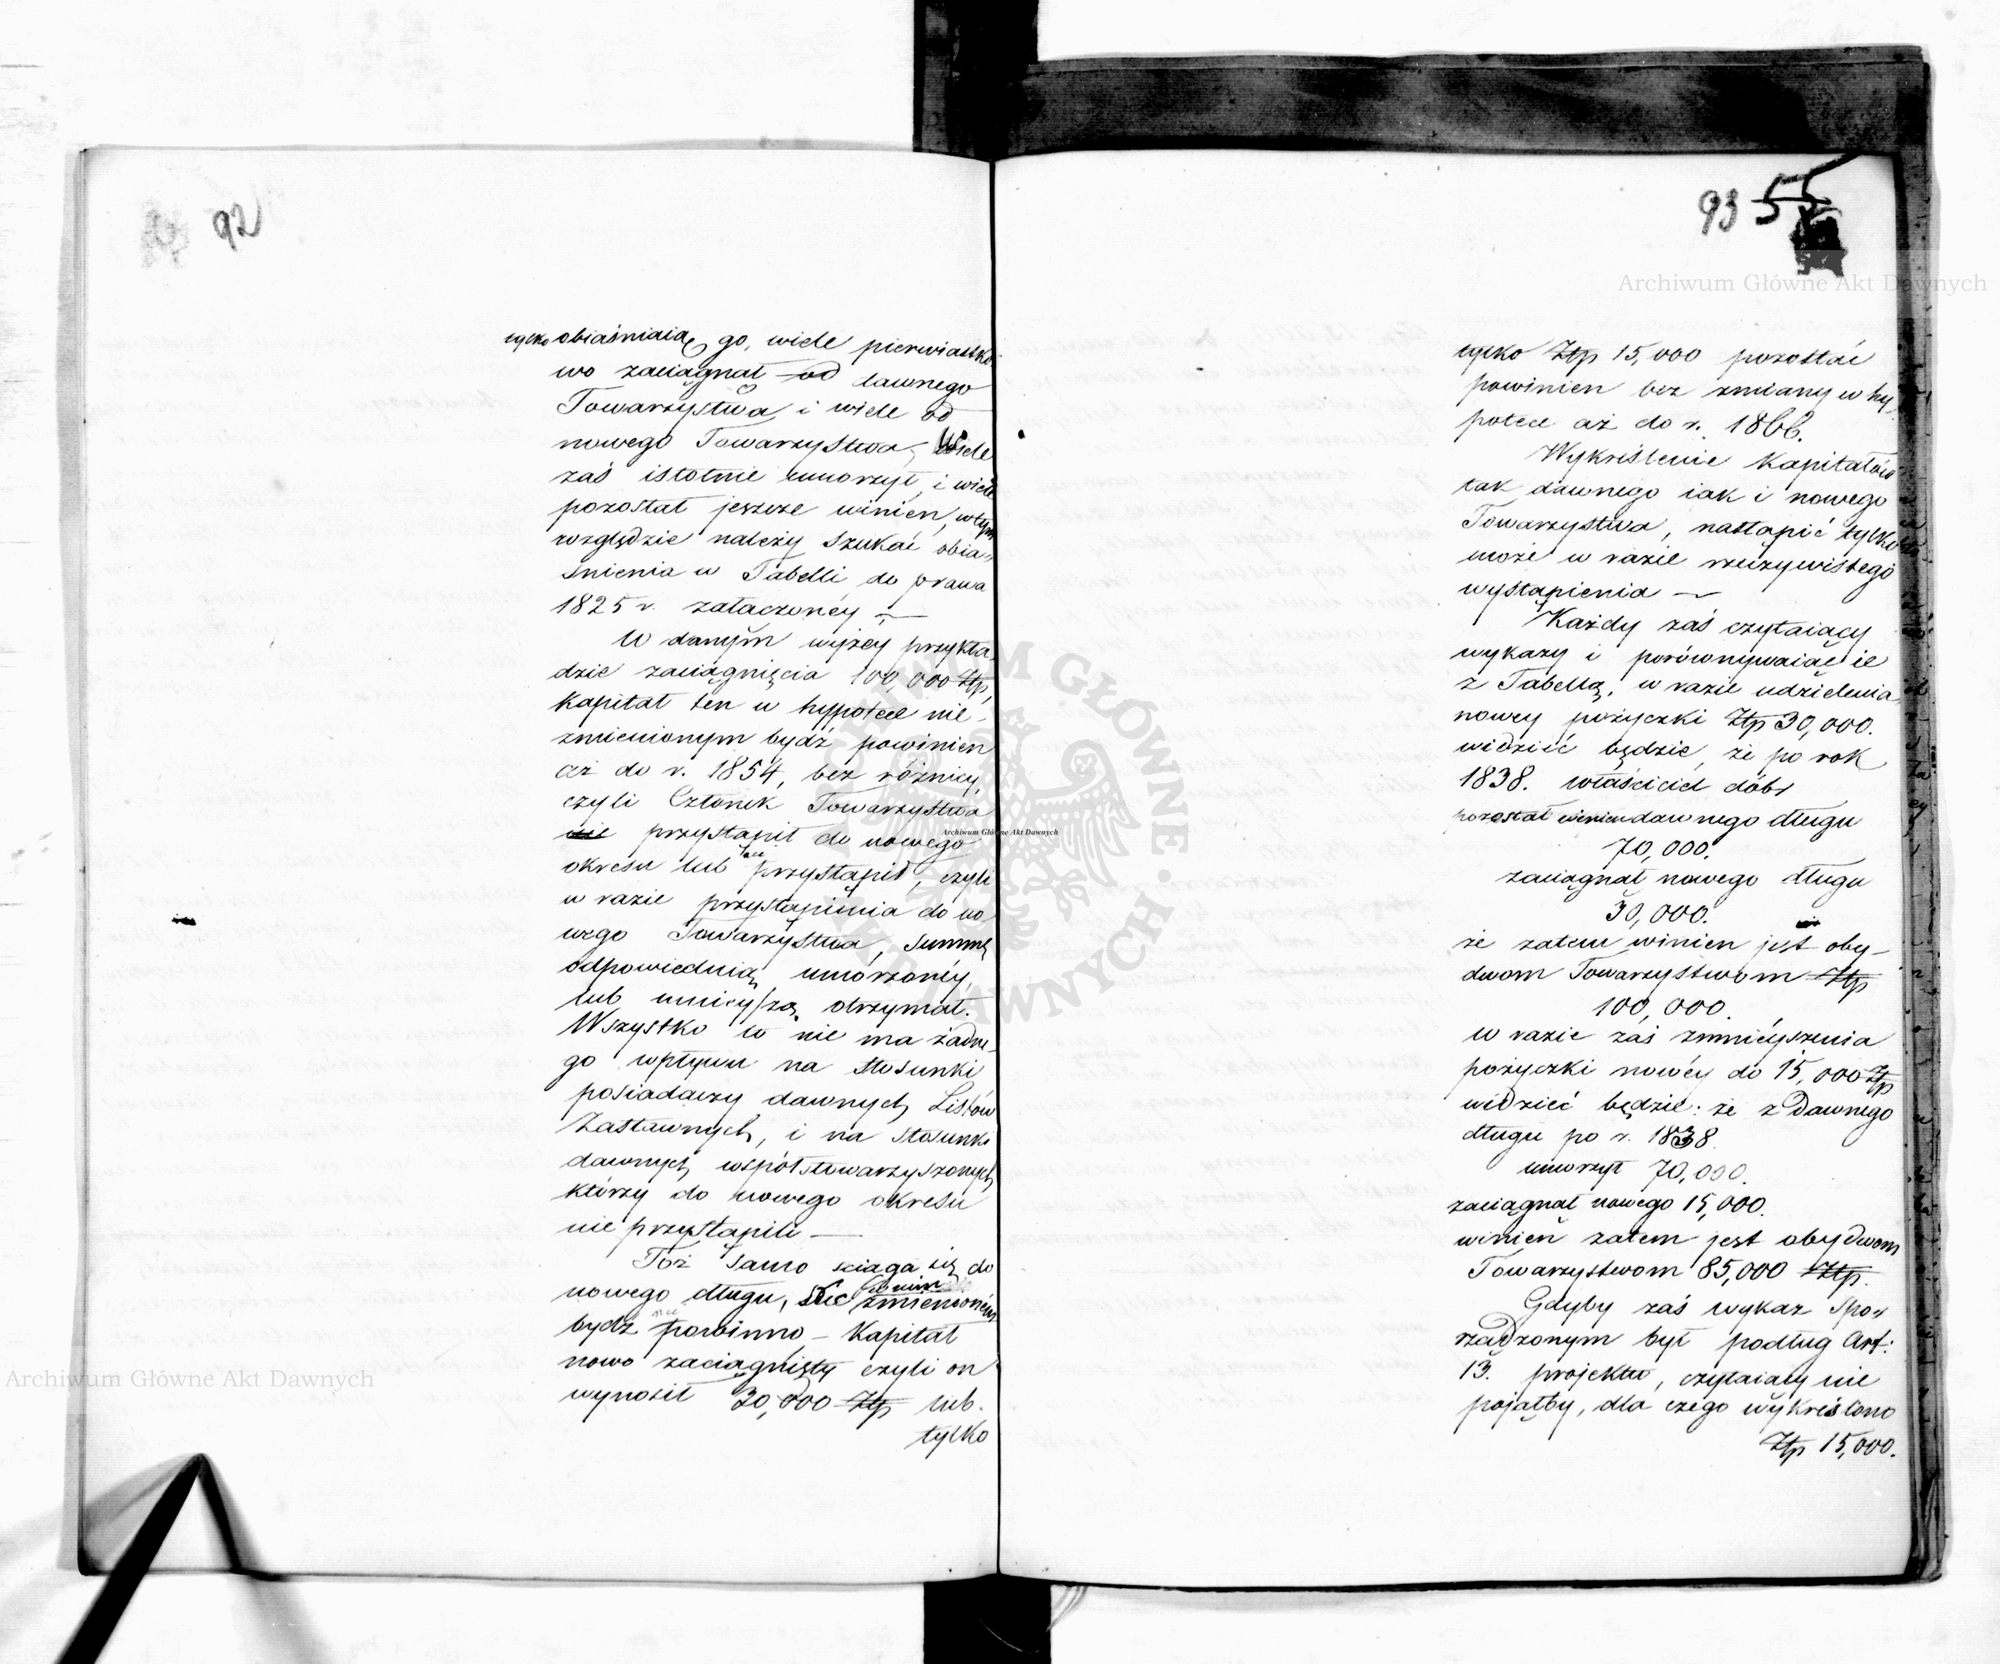 92
tylko obiaśniaią go, wiele pierwiastko
wo zaciągnął od dawnego
Towarzystwa, i wiele od
nowego Towarzystwa, wiele
zaś istotnie umorzył, i wiele
pozostał jeszcze winien, w tym
względzie należy szukać obia-
śnienia w Tabelli do prawa
1825 r. załączonéy —
W danym wyżéy przykła-
dzie zaciągnięcia 100,000 Złp,
kapitał ten w hypotece nie-
zmienionym bydź powinien
aż do r. 1854, bez różnicy,
czyli Członek Towarzystwa
przystąpił do nowego
okresu lub nie przystąpił, czyli
w razie przystąpienia do no-
wego Towarzystwa, summę
odpowiednią umorzonéy,
lub mnieyszą otrzymał.
Wszystko to nie ma żadne-
go wpływu na stosunki
posiadaczy dawnych Listów
Zastawnych, i na stosunki
dawnych współstowarzyszonych
którzy do nowego okresu
nie przystąpili —
Toż samo sciąga się do
nowego długu,
bydź powinno — Kapitał
nowo zaciągnięty czyli on
wynosił 30,000 Złp lub.
tylko
93 55
tylko Złp 15,000 pozostać
powinien bez zmiany w hy
potece aż do r. 1866.
Wykreślenie kapitałów
tak dawnego iak i nowego
Towarzystwa, nastąpić tylko
może w razie rzeczywistego
wystąpienia —
Każdy zaś czytaiący
wykazy i porównywaiąc ie
z Tabellą, w razie udzielenia
nowey pożyczki Złp 30,000.
widzieć będzie, że po rok
1838. właściciel dóbr
pozostał winien dawnego długu
70,000.
zaciągnął nowego długu
30,000.
że zatem winien jest oby-
dwom Towarzystwom Złp
100,000.
w razie zaś zmnieyszenia
pożyczki nowéy do 15,000 Złp
widzieć będzie: że z Dawnego
długu po r. 1838.
umorzył 70,000.
zaciągnął nowego 15,000.
winien zatem jest obydwom
Towarzystwom 85,000 Złp.
Gdyby zaś wykaz spo-
rządzonym był podług Art:
13. projektu, czytaiący nie
pojąłby, dla czego wykreślono
Złp 15,000.
Archiwum Główne Akt Dawnych
Archiwum Główne Akt Dawnych
Archiwum Główne Akt Dawnych